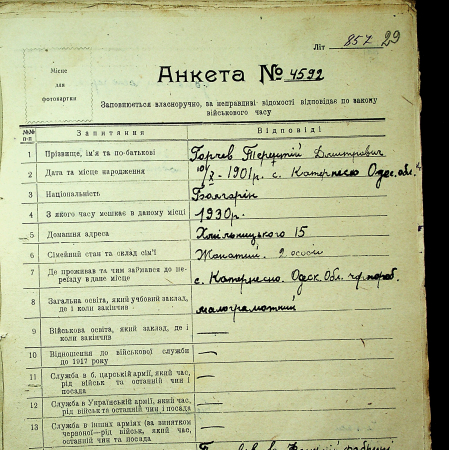 Літ 857 29
Місце
для
фотокартки
Анкета № 4592
Заповнюється власноручно, за неправдиві відомості відповідає по закону
військового часу
№№ п-п Запитання Відповіді
1 Прізвище, ім'я та по-батькові Горчев Терентій Дмитрович
2 Дата та місце народження 10/X - 1901р. с. Катержено Одес. обл.
3 Національність Болгарін
4 З якого часу мешкає в даному місці 1930 р.
5 Домашня адреса Хмільницького 15
6 Сімейний стан та склад сім'ї Жонатий. 2 особи
7 Де проживав та чим займався до переїзду в дане місце с. Катержено. Одеск. Обл.
8 Загальна освіта, який учбовий заклад,
де і коли закінчив малограмотний
9 Військова освіта, який заклад, де і
коли закінчив —
10 Відношення до військової служби
до 1917 року —
11 Служба в б. царській армії, який час,
рід військ та останній чин і
посада —
12 Служба в Українській армії, який час,
рід військ та останній чин і посада —
13 Служба в інших арміях (за винятком
червоної—рід військ, який час,
останній чин та посада —